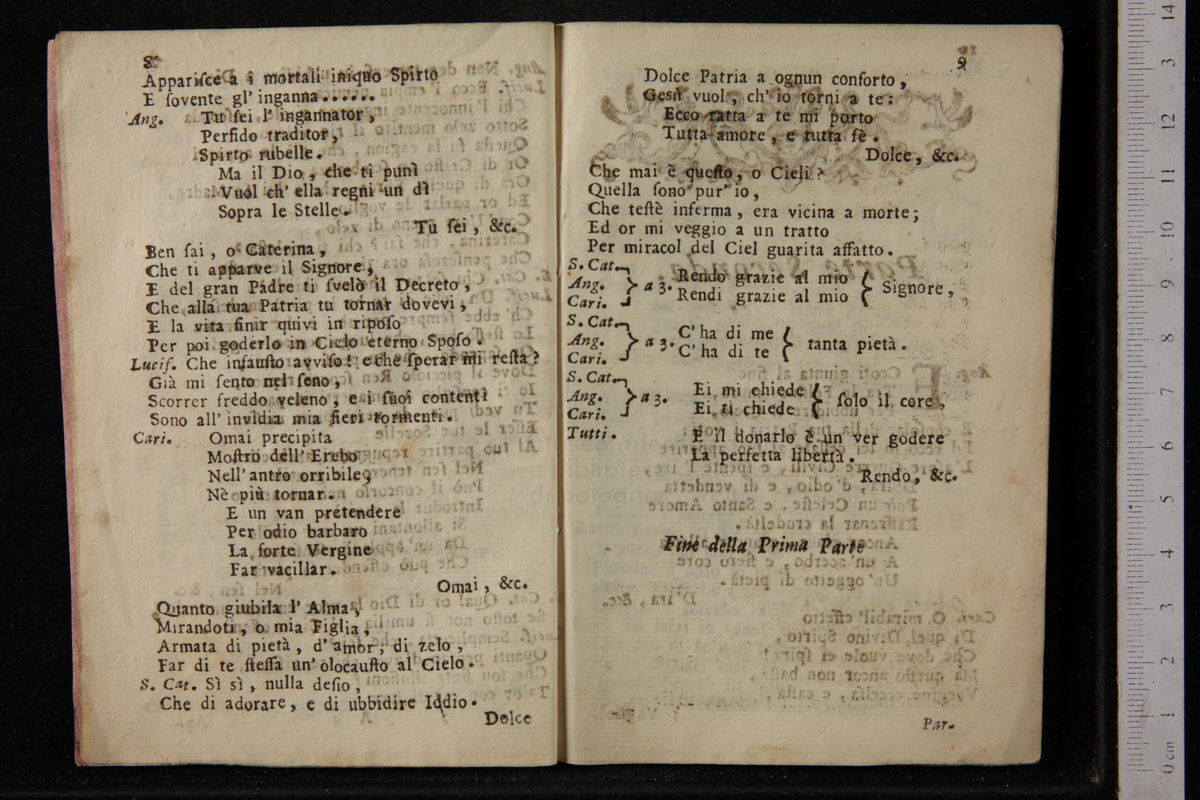 8
Appariſce a i mortali iniquo Spirto
E ſovente gl' inganna......
Ang. Tu ſei l' ingannator,
Perfido traditor,
Spirto rubelle.
Ma il Dio, che ti punì
Vuol ch' ella regni un dì
Sopra le Stelle.
Tu ſei, &c.
Ben ſai, o Caterina,
Che ti apparve il Signore,
E del gran Padre ti ſvelò il Decreto,
Che alla tua Patria tu tornar dovevi,
E la vita finir quivi in ripoſo
Per poi goderlo in Cielo eterno Spoſo.
Lucif. Che infauſto avviſo! e che ſperar mi reſta?
Già mi ſento nel ſeno,
Scorrer freddo veleno, e i ſuoi contenti
Sono all' invidia mia fieri tormenti.
Cari. Omai precipita
Moſtro dell' Erebo
Nell' antro orribile,
Nè più tornar.
E un van pretendere
Per odio barbaro
La forte Vergine
Far vacillar.
Omai, &c.
Quanto giubila l' Alma,
Mirandoti, o mia Figlia,
Armata di pietà, d' amor, di zelo,
Far di te ſteſſa un' olocauſto al Cielo.
S. Cat. Sì sì, nulla deſio,
Che di adorare, e di ubbidire Iddio.
Dolce
9
Dolce Patria a ognun conforto,
Gesù vuol, ch' io torni a te:
Ecco ratta a te mi porto
Tutta amore, e tutta fè.
Dolce, &c.
Che mai è queſto, o Cieli?
Quella ſono pur' io,
Che teſtè inferma, era vicina a morte;
Ed or mi veggio a un tratto
Per miracol del Ciel guarita affatto.
S. Cat.
Ang. } a 3. Rendo grazie al mio { Signore,
Cari. Rendi grazie al mio
S. Cat.
Ang. } a 3. C' ha di me { tanta pietà.
Cari. C' ha di te
S. Cat.
Ang. } a 3. Ei mi chiede { ſolo il core,
Cari. Ei ti chiede
Tutti. E il donarlo è un ver godere
La perfetta libertà.
Rendo, &c.
Fine della Prima Parte
Par-